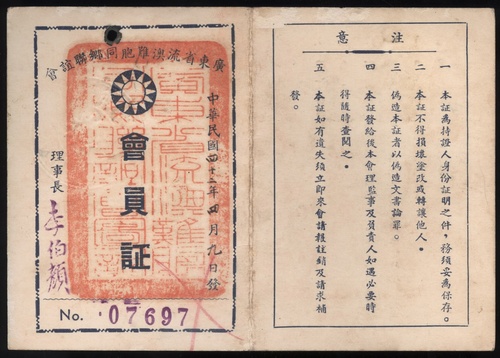 廣東省流澳難胞同鄉聯誼會
會員証
中華民國四十三年四月九日發
理事長 李伯頎
No. 07697
注意
一 本証為持證人身份証明之件，務須妥為保存。
二 本証不得損壞塗改或轉讓他人。
三 偽造本証者以偽造文書論罪。
四 本証發給後本會理監事及負責人如遇必要時
得隨時查閱之。
五 本証如有遺失須立即來會請報註銷及請求補
發。